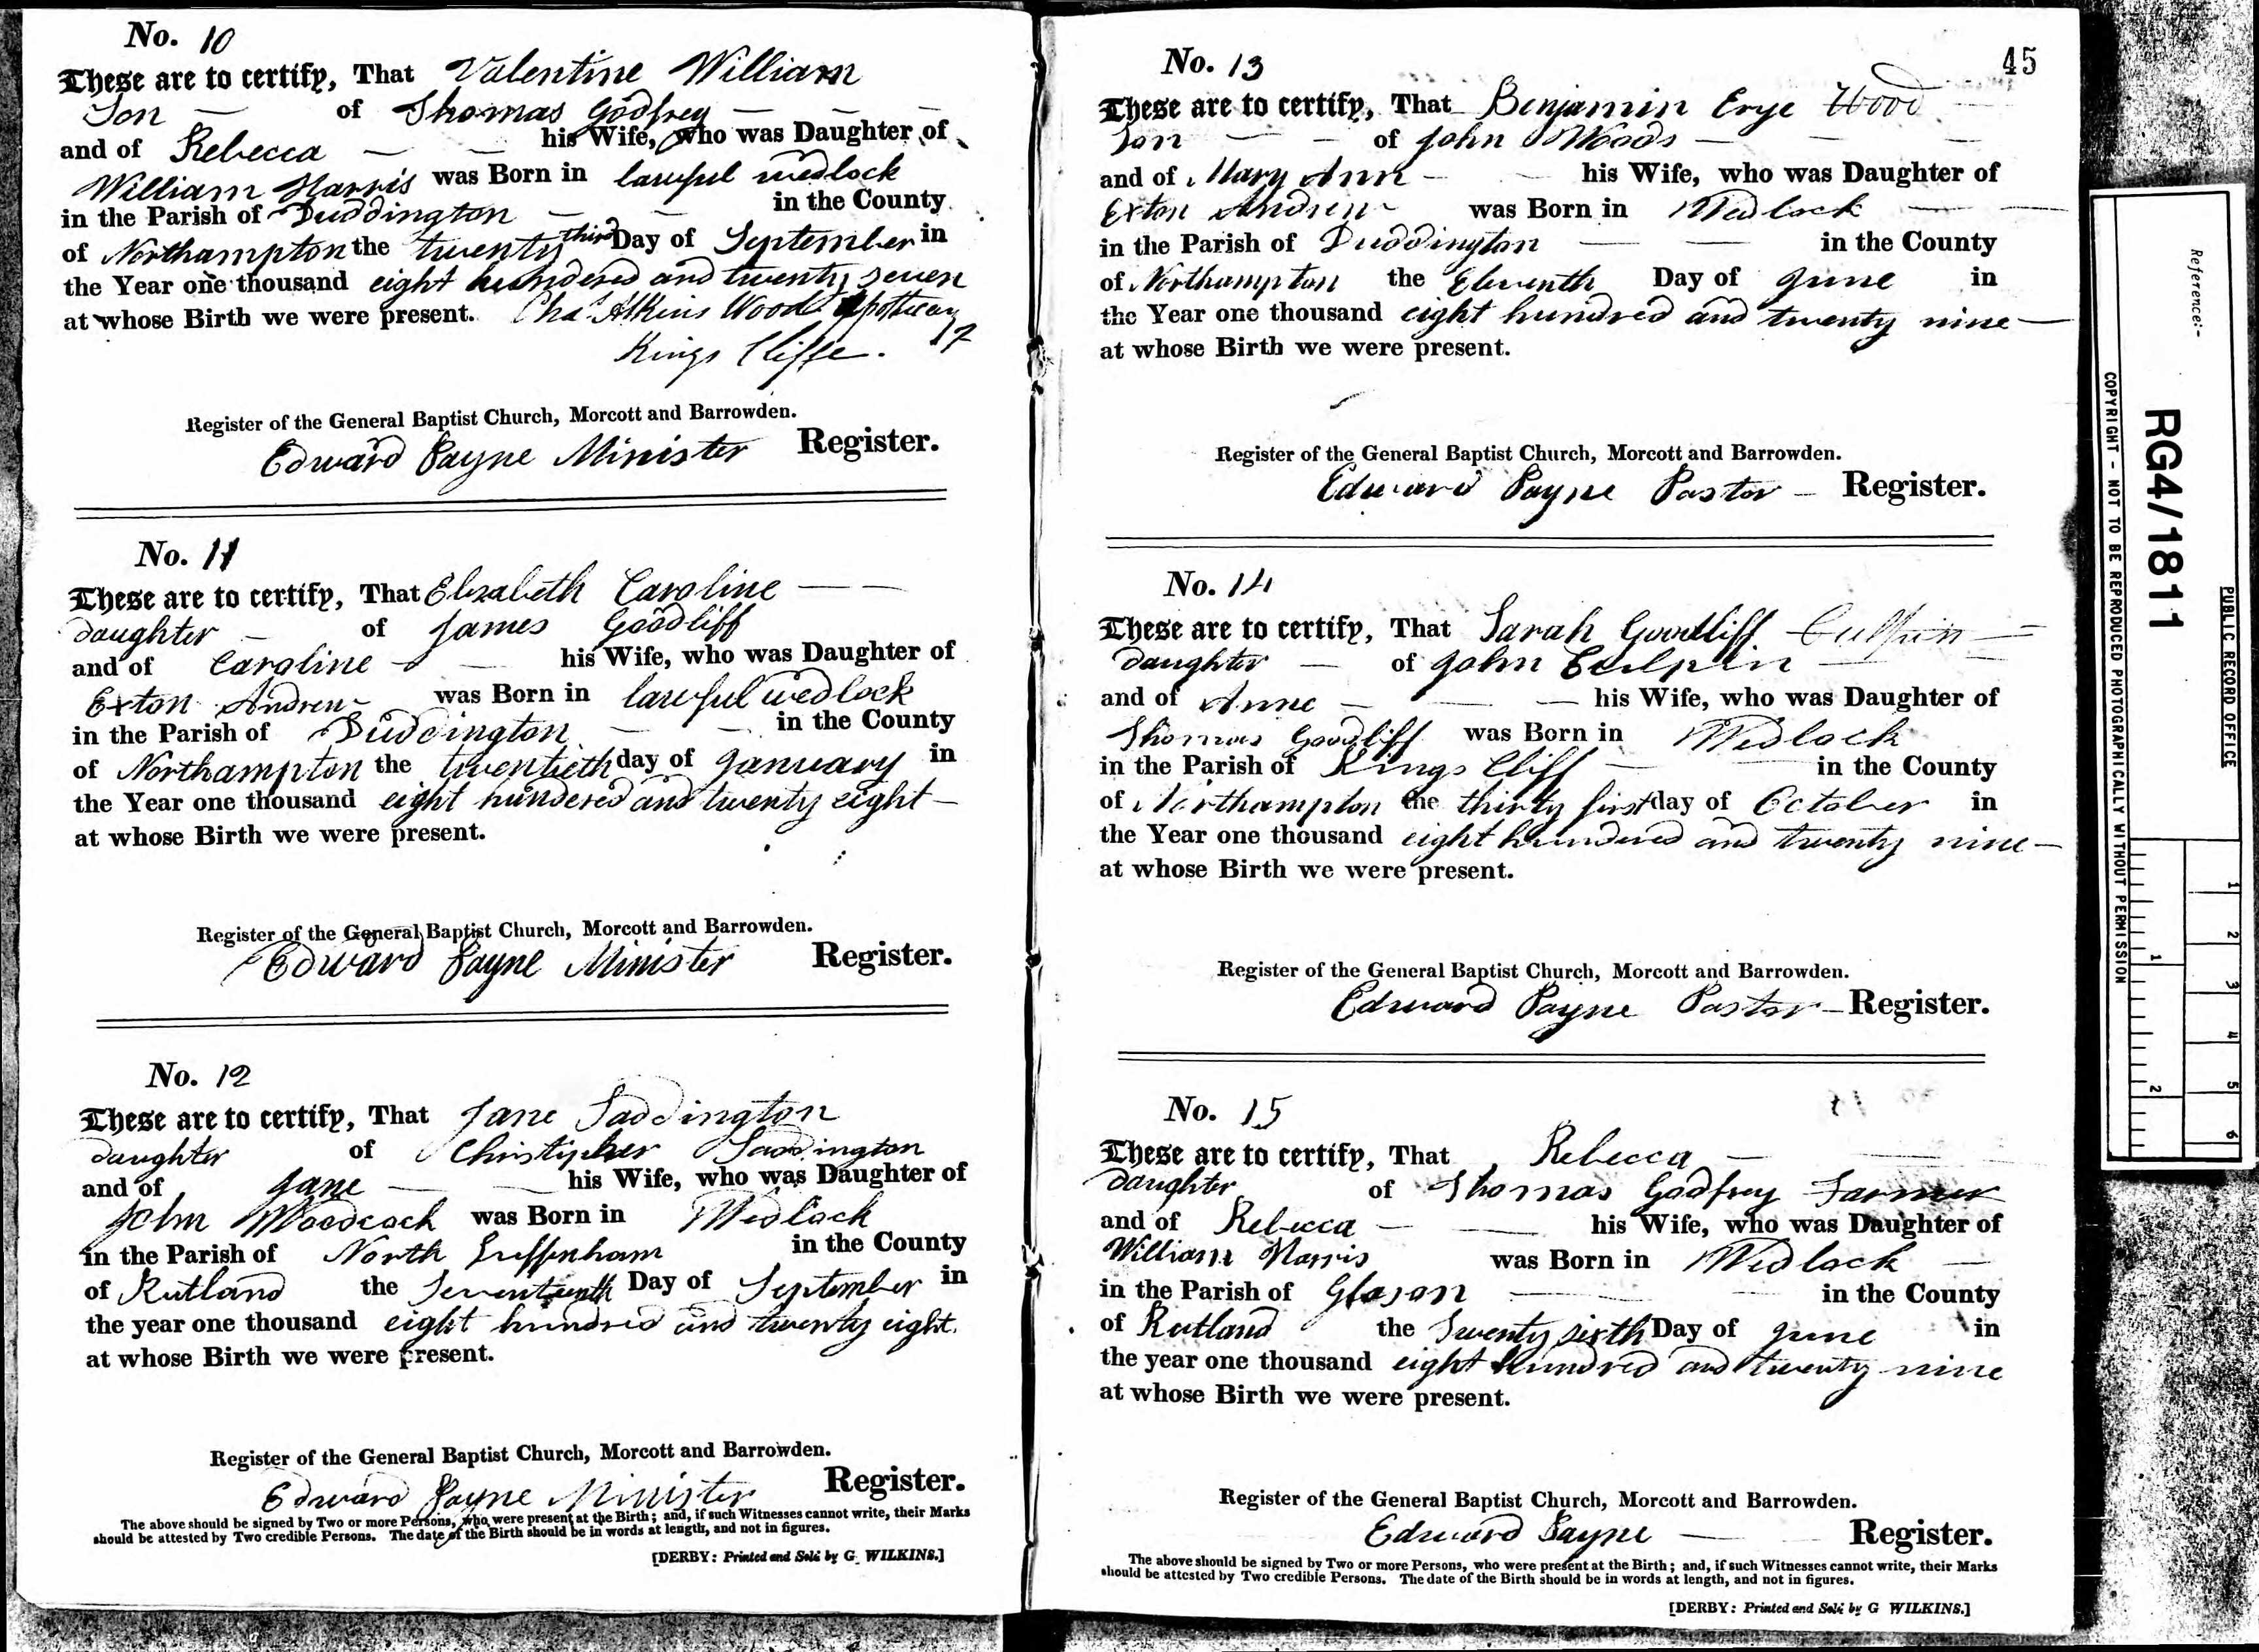 No. 10
These are to certify, That Valentine William
Son of Thomas Godfrey
and of Rebecca his Wife, who was Daughter of
William Harris was Born in lawful wedlock
in the Parish of Duddington in the County
of Northampton the twenty third Day of September in
the Year one thousand eight hundered and twenty seven
at whose Birth we were present. Chas Atkins Wood Apothecary
Kings Cliffe.
Register of the General Baptist Church, Morcott and Barrowden.
Edward Payne Minister Register.
No. 11
These are to certify, That Elizabeth Caroline
daughter of James Goodliff
and of Caroline his Wife, who was Daughter of
Exton Andrew was Born in lawful wedlock
in the Parish of Duddington in the County
of Northampton the twentieth day of January in
the Year one thousand eight hundered and twenty eight
at whose Birth we were present.
Register of the General Baptist Church, Morcott and Barrowden.
Edward Payne Minister Register.
No. 12
These are to certify, That Jane Saddington
daughter of Christipher Saddington
and of Jane his Wife, who was Daughter of
John Woodcock was Born in Wedlock
in the Parish of North Luffenham in the County
of Rutland the Seventeenth Day of September in
the year one thousand eight hundred and twenty eight.
at whose Birth we were present.
Register of the General Baptist Church, Morcott and Barrowden.
Edward Payne Minister Register.
The above should be signed by Two or more Persons, who were present at the Birth; and, if such Witnesses cannot write, their Marks
should be attested by Two credible Persons. The date of the Birth should be in words at length, and not in figures.
[DERBY: Printed and Sold by G. WILKINS.]
45
No. 13
These are to certify, That Benjamin Erye Wood
Son of John Woods
and of Mary Ann his Wife, who was Daughter of
Exton Andrew was Born in Wedlock
in the Parish of Duddington in the County
of Northampton the Eleventh Day of June in
the Year one thousand eight hundred and twenty nine
at whose Birth we were present.
Register of the General Baptist Church, Morcott and Barrowden.
Edward Payne Pastor Register.
No. 14
These are to certify, That Sarah Goodliff Culpin
daughter of John Culpin
and of Anne his Wife, who was Daughter of
Thomas Goodliff was Born in Wedlock
in the Parish of Kings Cliff in the County
of Northampton the thirty first day of October in
the Year one thousand eight hundered and twenty nine
at whose Birth we were present.
Register of the General Baptist Church, Morcott and Barrowden.
Edward Payne Pastor Register.
No. 15
These are to certify, That Rebecca
daughter of Thomas Godfrey Farmer
and of Rebecca his Wife, who was Daughter of
William Harris was Born in Wedlock
in the Parish of Glason in the County
of Rutland the Twenty sixth Day of June in
the year one thousand eight hundred and twenty nine
at whose Birth we were present.
Register of the General Baptist Church, Morcott and Barrowden.
Edward Payne Register.
The above should be signed by Two or more Persons, who were present at the Birth; and, if such Witnesses cannot write, their Marks
should be attested by Two credible Persons. The date of the Birth should be in words at length, and not in figures.
[DERBY: Printed and Sold by G WILKINS.]
PUBLIC RECORD OFFICE
Reference:-
RG4/1811
COPYRIGHT - NOT TO BE REPRODUCED PHOTOGRAPHICALLY WITHOUT PERMISSION
1 2 3 4 5 6
1 2